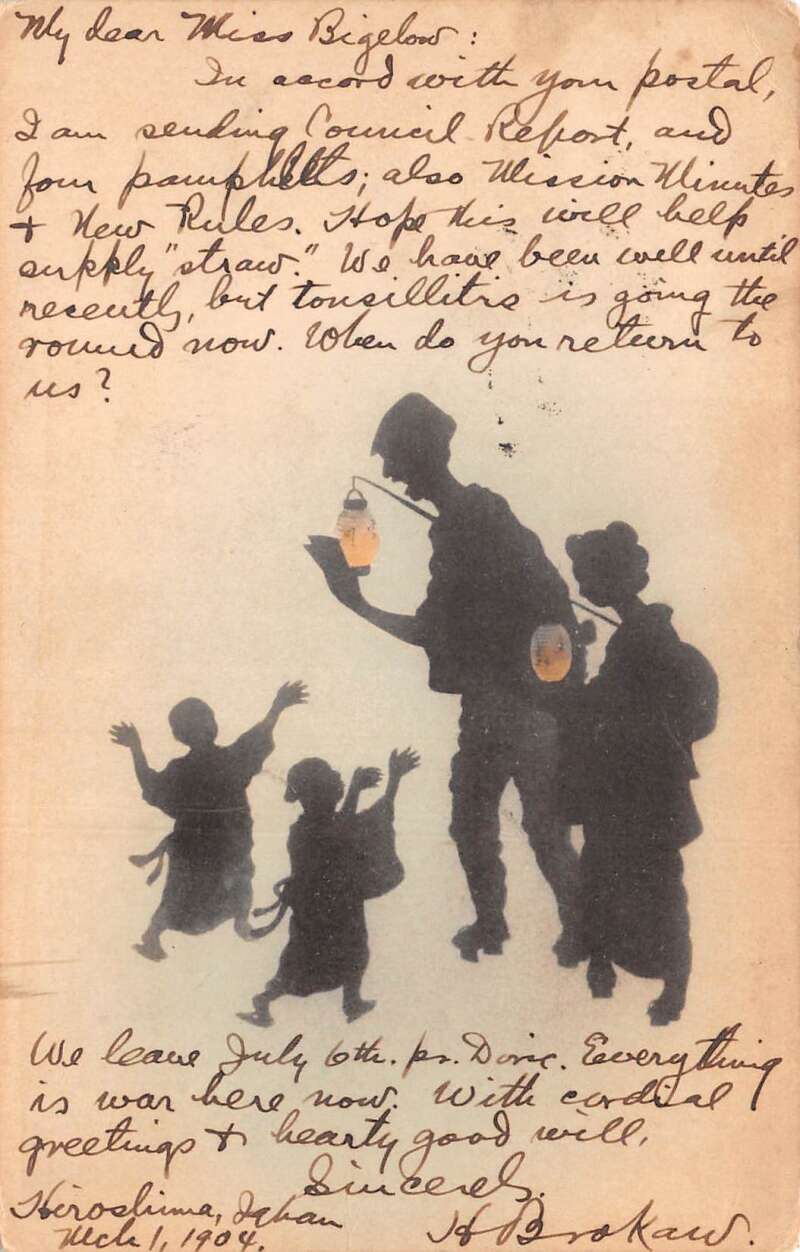 My dear Miss Bigelow:
In accord with your postal,
I am sending Council Report, and
four pamphlets; also Mission Minutes
+ New Rules. Hope this will help
supply "straw." We have been well until
recently, but tonsillitis is going the
round now. When do you return to
us?
We leave July 6th. pr. Doric. Everything
is war here now. With cordial
greetings + hearty good will,
Sincerely,
Hiroshima, Japan
H Brokaw.
Mch 1, 1904.